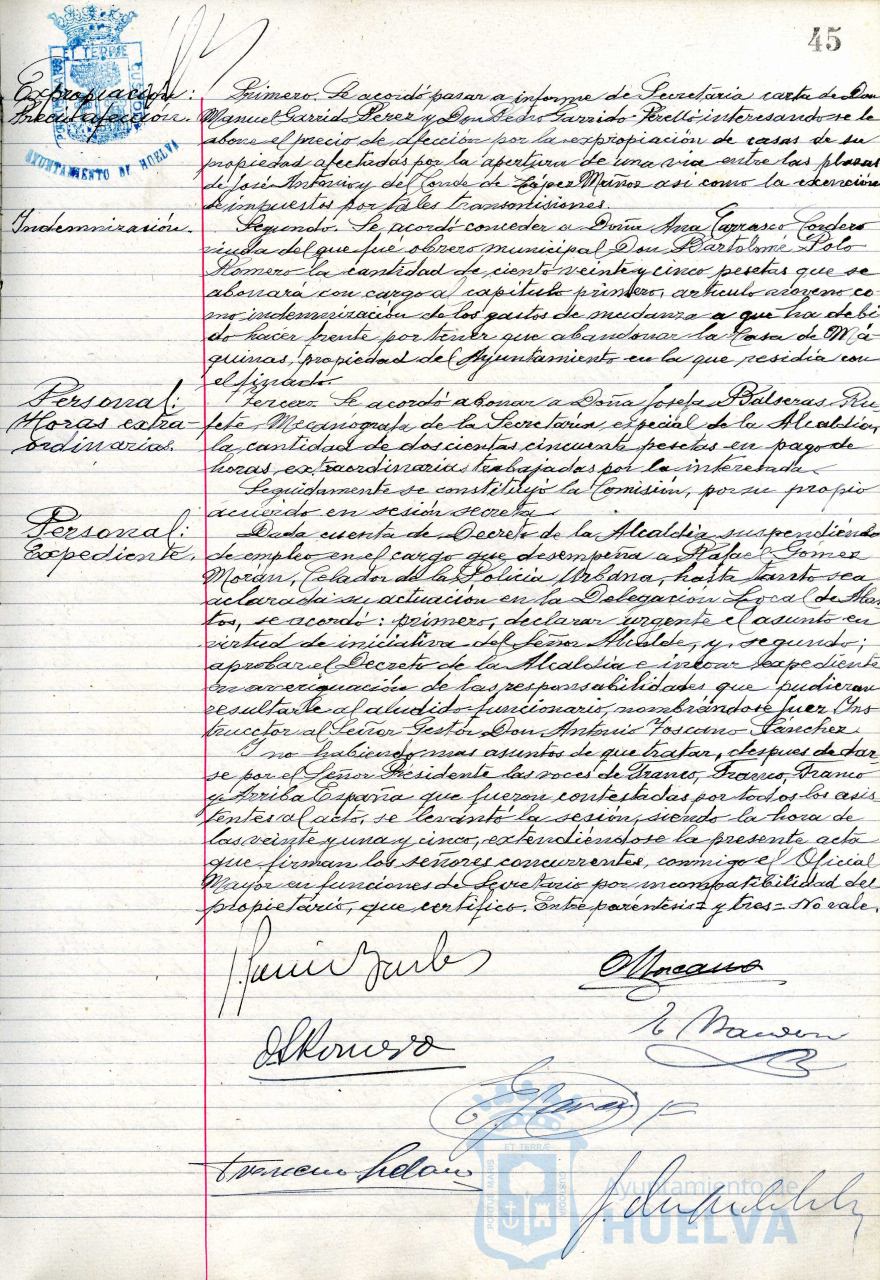 45
ET TERRAE
AYUNTAMIENTO DE HUELVA
Expropiación:
Precio afección.
Primero. Se acordó pasar a informe de Secretaría carta de Don
Manuel Garrido Perez y Don Pedro Garrido Perelló interesando se le
abone el precio de afección por la expropiación de casas de su
propiedad afectadas por la apertura de una via entre las plazas
de José Antonio y del Conde de López Muñoz asi como la exención
de impuestos por tales transmisiones.
Indemnización.
Segundo. Se acordó conceder a Doña Ana Carrasco Cordero
viuda del que fué obrero municipal Don Bartolomé Polo
Romero la cantidad de ciento veinte y cinco pesetas que se
abonará con cargo al capitulo primero, articulo noveno co-
mo indemnización de los gastos de mudanza a que ha debi
do hacer frente por tener que abandonar la Casa de Má-
quinas, propiedad del Ayuntamiento en la que residia con
el finado.
Personal:
Horas extra-
ordinarias.
Tercero. Se acordó abonar a Doña Josefa Balseras Ru-
fete, Mecanografa de la Secretaría especial de la Alcaldia,
la cantidad de doscientas cincuenta pesetas en pago de
horas extraordinarias trabajadas por la interesada.
Seguidamente se constituyó la Comisión, por su propio
acuerdo en sesión secreta.
Personal:
Expediente.
Dada cuenta de Decreto de la Alcaldia suspendiendo
de empleo en el cargo que desempeña a Rafael Gomez
Morán, Celador de la Policía Urbana, hasta tanto sea
aclarada su actuación en la Delegación Local de Abas-
tos, se acordó: primero, declarar urgente el asunto en
virtud de iniciativa del Señor Alcalde, y, segundo;
aprobar el Decreto de la Alcaldia e incoar expediente
en averiguación de las responsabilidades que pudieran
resultarle al aludido funcionario, nombrándose Juez Ins
tructor al Señor Gestor Don Antonio Toscano Sánchez.
Y no habiendo mas asuntos de que tratar, despues de dar-
se por el Señor Presidente las voces de Franco, Franco, Franco
y Arriba España que fueron contestadas por todos los asis
tentes al acto, se levantó la sesión, siendo la hora de
las veinte y una y cinco, extendiéndose la presente acta
que firman los señores concurrentes, conmigo el Oficial
Mayor en funciones de Secretario por incompatibilidad del
propietario, que certifico. Entre paréntesis = y tres = No vale.
ET TERRAE
PORTUS MARIS
CUSTODIA
Ayuntamiento de
HUELVA